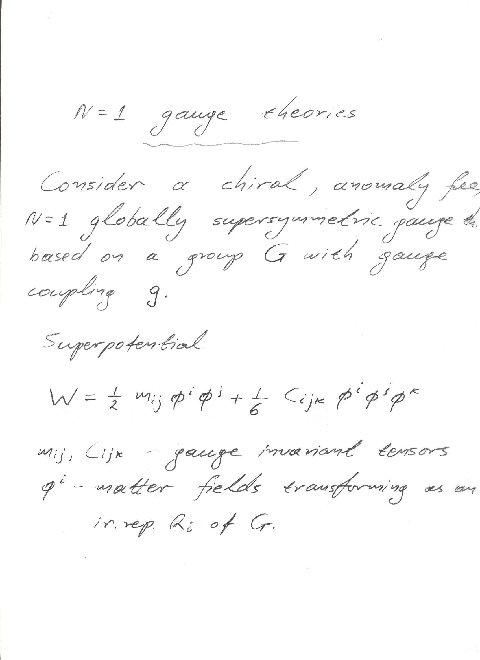 N = 1 gauge theories
Consider a chiral, anomaly fee,
N=1 globally supersymmetric gauge th.
based on a group G with gauge
coupling g.
Superpotential
W = 1/2 mij φ^i φ^j + 1/6 Cijk φ^i φ^j φ^k
mij, Cijk - gauge invariant tensors
φ^i - matter fields transforming as an
ir. rep. Ri of G.